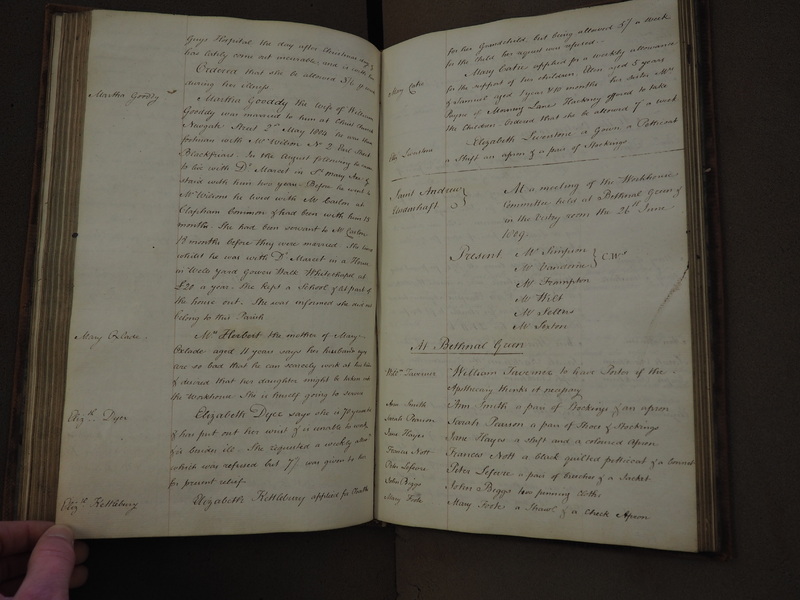 Guys Hospital the day after Christmas day &
has lately come out incurable, and is with her
Ordered that she be allowed
during her illness.
Martha Gooddy
Martha Gooddy the wife of William
Gooddy was married to him at Christ Church
Newgate Street 2nd May 1804 he was then
with Mr Wilson No 2
Blackfriars. In the August following he went
to live with Dr Marcet in St Mary Axe &
staid with him two years. Before he went to
Mr Wilson he lived with Mr Carlon at
Clapham Common & had been with him 13
months. She had been servant to Mr Carlon
19 months before they were married. She lived
whilst he was with Dr Marcet in a House
in Wells yard Gowers Walk Whitechapel at
£20 a year. She kept a School & let part of
the house out. She was informed she did not
belong to this Parish
Mary Exlade.
Mrs Herbert the mother of Mary
Exlade aged 11 years says her husband's eyes
are so bad that he can scarcely work at his trade
& desired that her daughter might be taken into
the Workhouse. She is herself going to
Elizth Dyer
Elizabeth Dyer says she is 70 years old
& has put out her wrist & is unable to work
& is besides ill. She requested a weekly allowce
which was refused but 7/ was given to her
for present relief
Elizth Kettlebury
Elizabeth Kettlebury applied for Cloaths
for her Grandchild, but being allowed 5/ a week
for the Child her request was refused.
Mary Oates
Mary Oates applied for a weekly allowance
for the support of her children. Ellen aged 5 years
& Samuel aged 1 year & 10 months her sister Mrs
of Lane Hackney offered to take
the Children. Ordered that she be allowed 7 a week
Eliz Livestone
Elizabeth Livestone a Gown a Petticoat
a Shift an apron & a pair of Stockings
Saint Andrew
Undershaft
At a meeting of the Workhouse
Committee held at Bethnal Green
in the Vestry room the 26th June
1809.
Present Mr Simpson
Mr Vandome C.Ws
Mr Frampton
Mr Wilt
Mr Fellows
Mr Sexton
At Bethnal Green
Willm Taverner
William Taverner to have Porter if the
Apothecary thinks it necessary
Ann Smith
Ann Smith a pair of Stockings & an apron
Sarah Pearson
Sarah Pearson a pair of Shoes & Stockings
Jane Hayes
Jane Hayes a shift and a coloured Apron
Francis Nott
Francis Nott a black quilted petticoat & a Bonnet
Peter Lefevre
Peter Lefevre a pair of breeches & a Jacket
John Briggs
John Briggs two pinning cloths
Mary Forks
Mary Forks a Shawl & a Check Apron